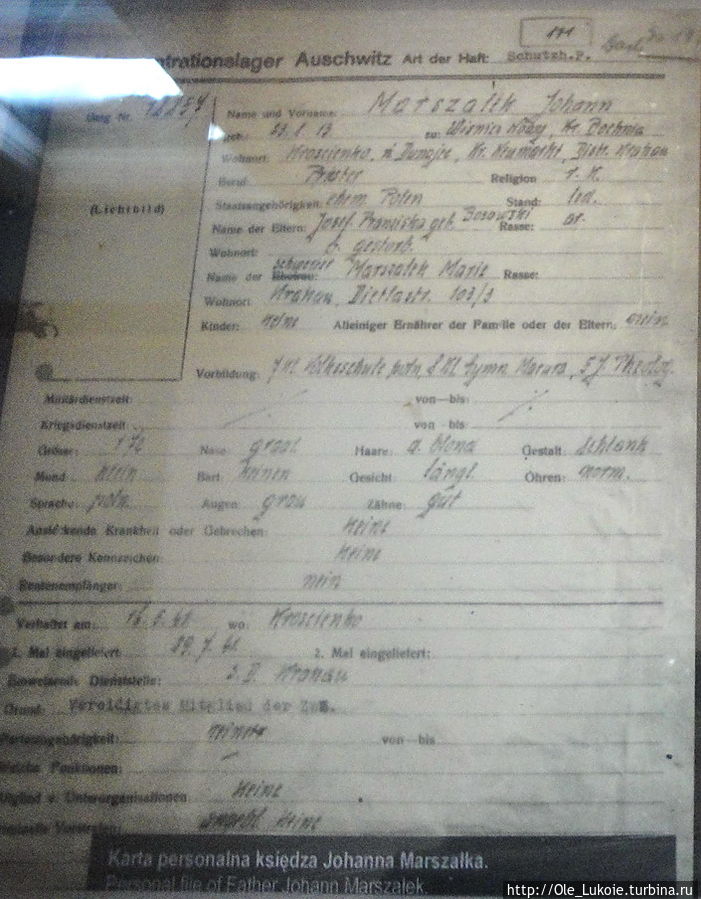 111
ntrationslager Auschwitz Art der Haft: Schutzh.P.
Name und Vorname: Marszalek Johann
geb.: zu: Wisnicz Nowy, Kr. Bochnia
Wohnort: Kroscienko, Kr. Neumarkt, Distr. Krakau
Beruf: Priester Religion r. K.
(Lichtbild)
Staatsangehörigkeit: ehem. Polen Stand: led.
Name der Eltern: Josef, Franziska geb. Rasse: ar.
Wohnort: b. gestorb.
Name der Schwester Ehefrau: Marszalek Marie Rasse:
Wohnort: Krakau, Dietlastr. 103/3
Kinder: keine Alleiniger Ernährer der Familie oder der Eltern: nein
Vorbildung: 7 Kl. Volksschule poln, 8 Kl. Gymn. 5 J. Theolog.
Militärdienstzeit: von—bis:
Kriegsdienstzeit von—bis
Grösse: 172 Nase: grosl Haare: d. blond Gestalt: schlank
Mund: klein Bart: keinen Gesicht: längl. Ohren: norm.
Sprache: poln. Augen: grau Zähne: gut
Ansteckende Krankheit oder Gebrechen: keine
Besondere Kennzeichen: keine
Rentenempfänger: nein
Verhaftet am: wo: Kroscienko
1. Mal eingeliefert: 2. Mal eingeliefert:
Einweisende Dienststelle: S.D. Krakau
Grund: Vereidigtes Mitglied der
Parteizugehörigkeit: von—bis
Welche Funktionen:
Mitglied v. Unterorganisationen: keine
Kriminelle Vorstrafen: angebl. keine
Karta personalna księdza Johanna Marszałka.
Personal file of Father Johann Marszalek.
http://Ole_Lukoie.turbina.ru/